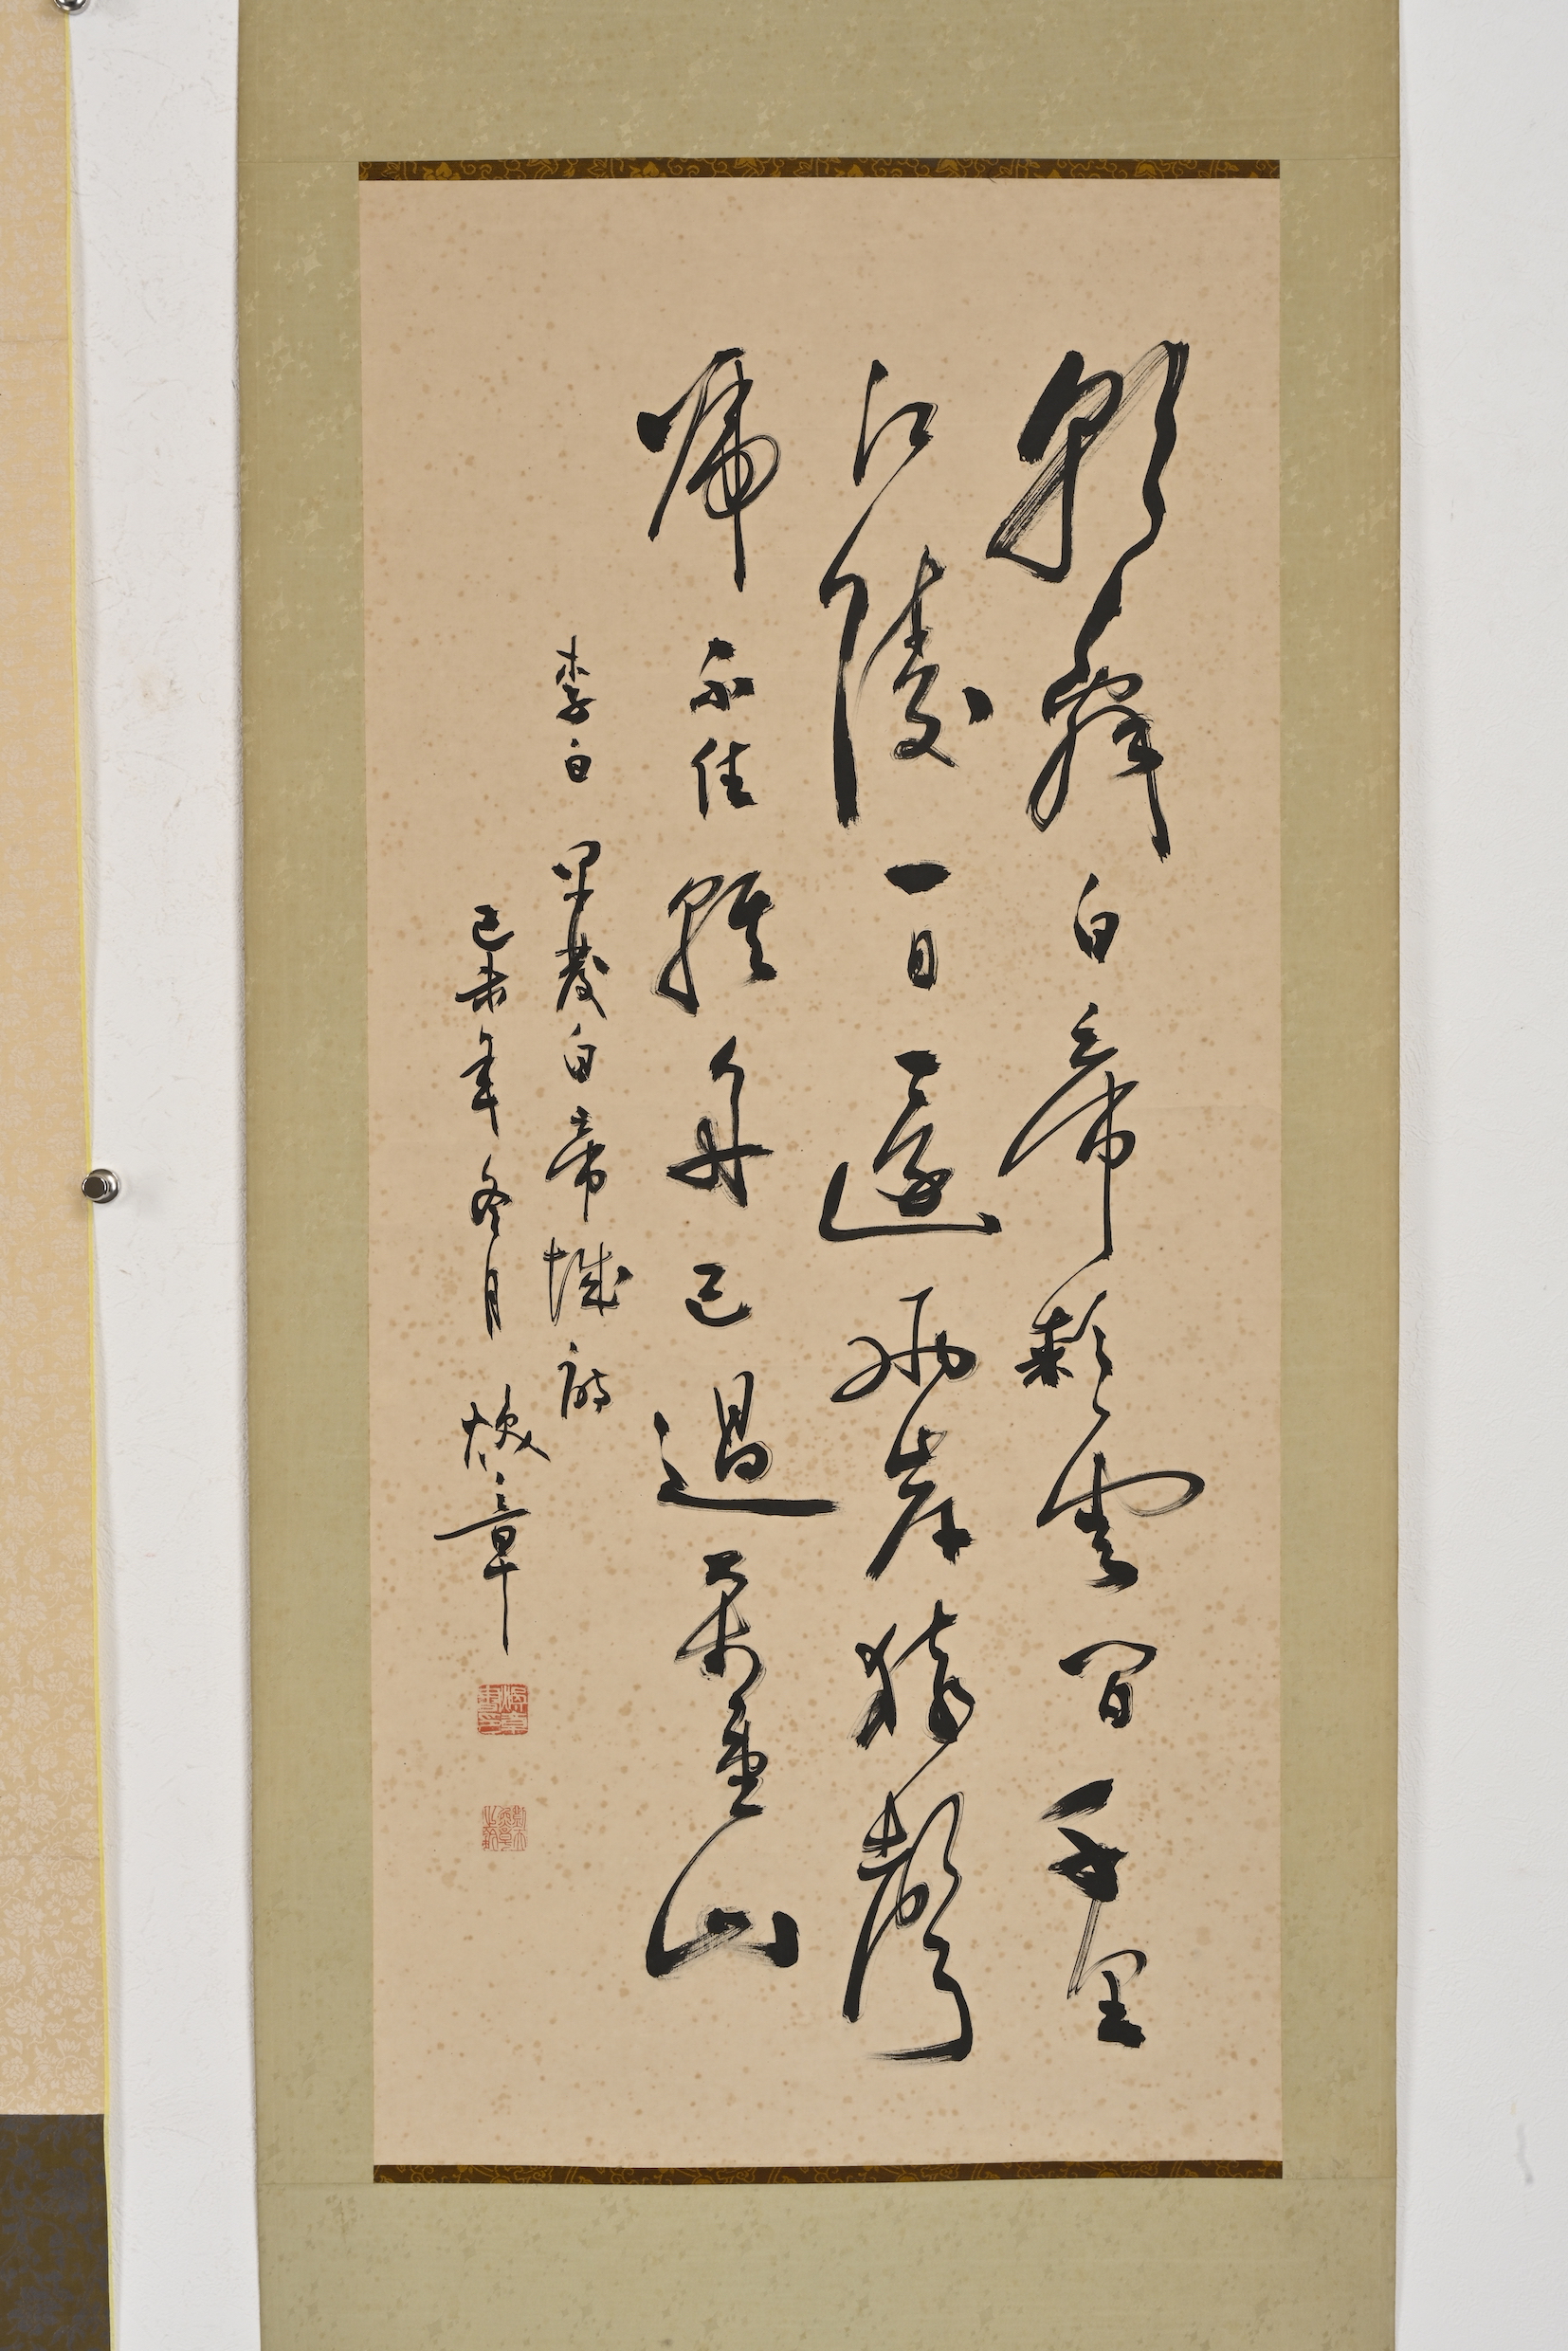 朝辭白帝彩雲間千里
江陵一日還兩岸猿聲
啼不住輕舟已過萬重山
李白早發白帝城詩
己未年冬月煥章
煥章書印